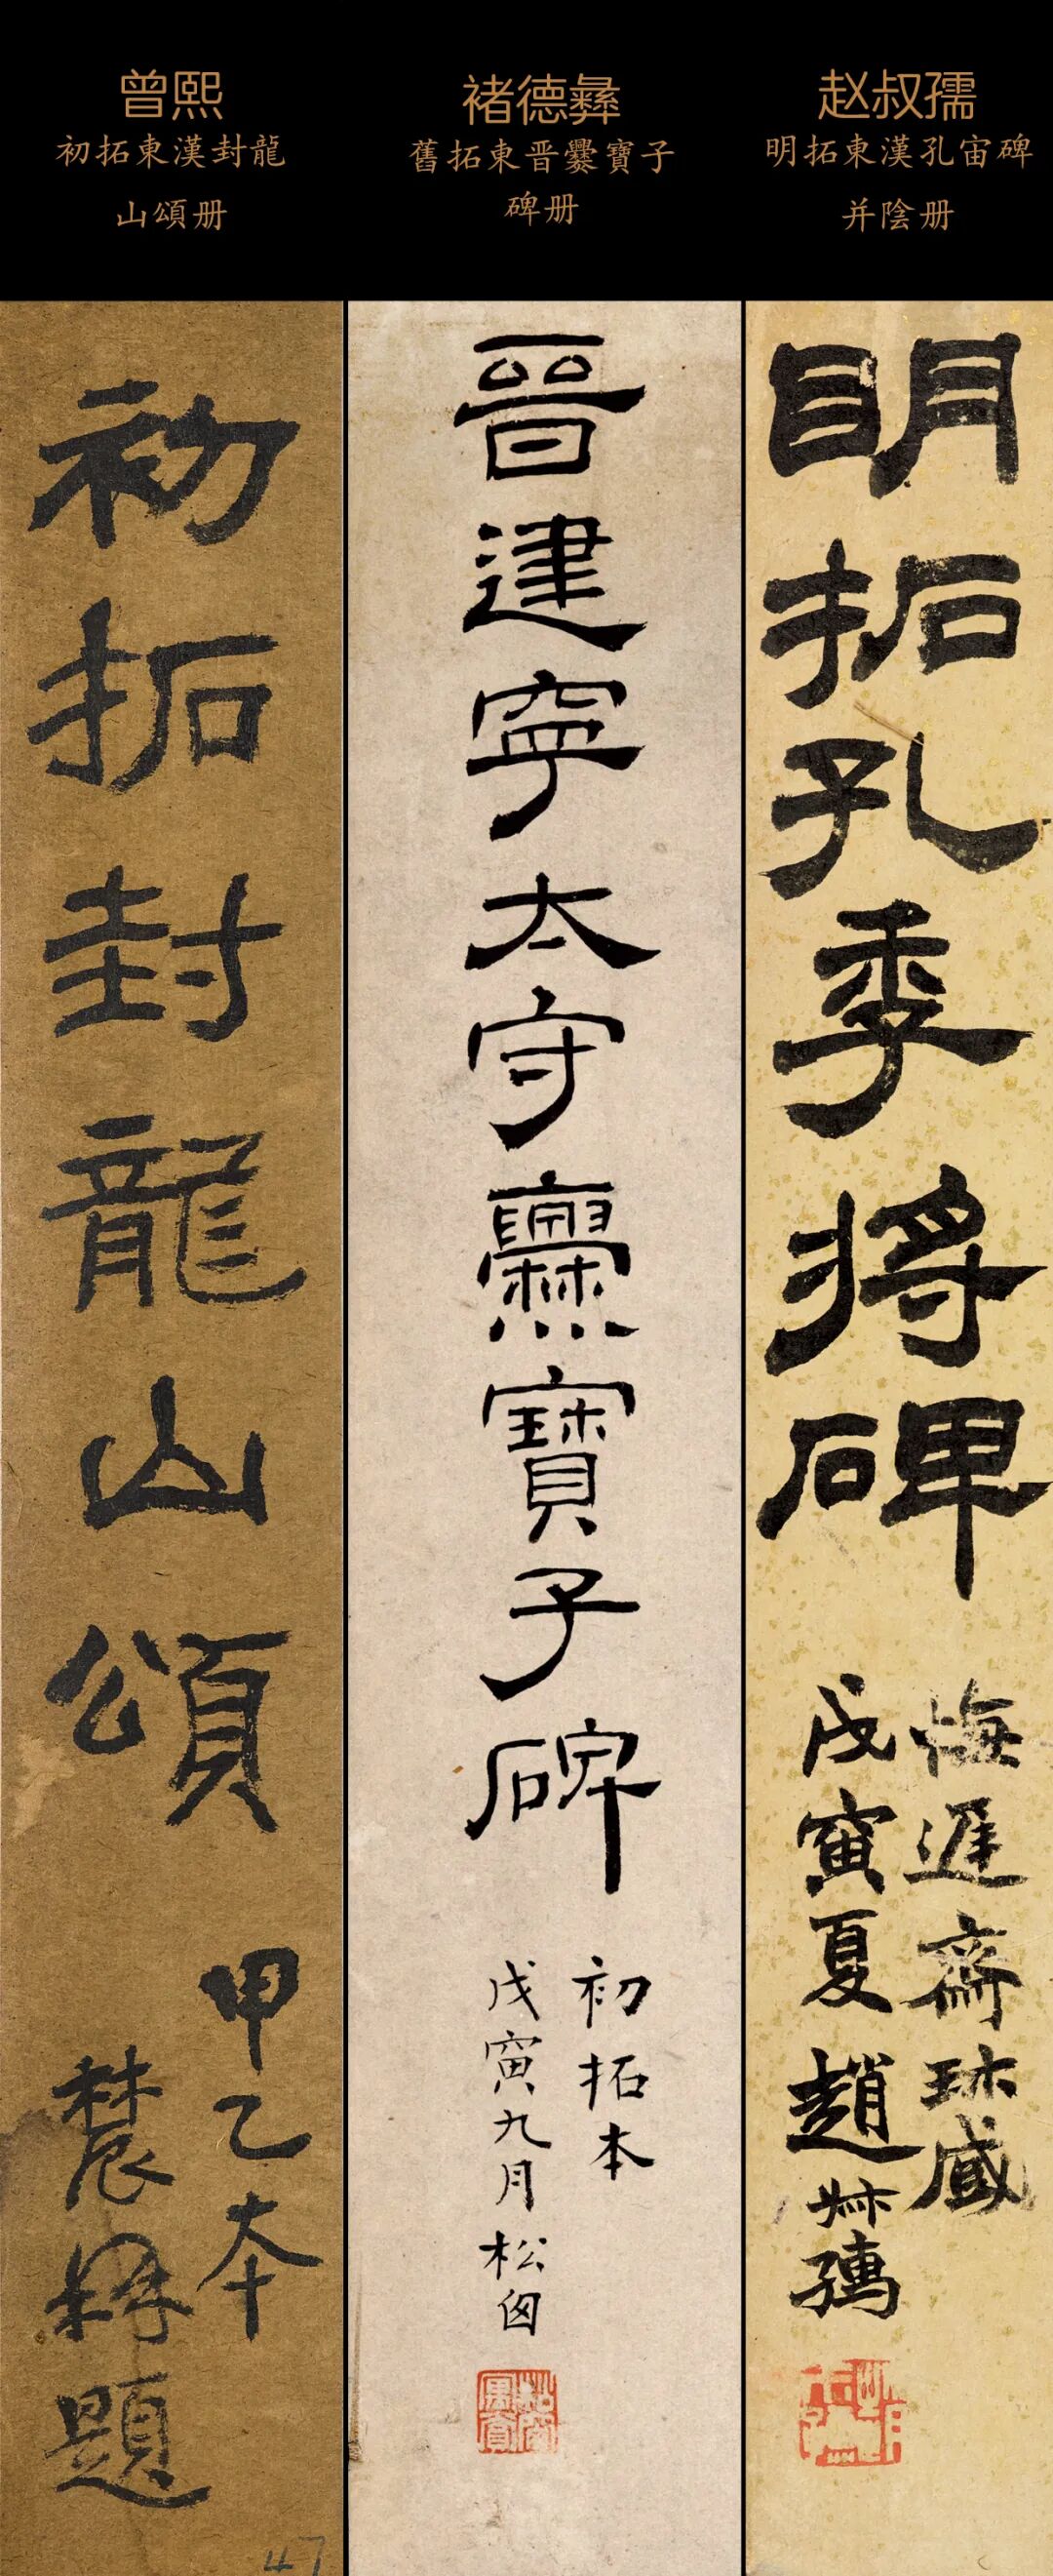 曾熙
初拓東漢封龍
山頌册
褚德彝
舊拓東晋爨寶子
碑册
赵叔孺
明拓東漢孔宙碑
并陰册
初拓封龍山頌
甲乙本
農髯題
晉建寧太守爨寶子碑
初拓本
戊寅九月松囪
明拓孔季將碑
悔遲齋珎藏
戊寅夏趙尗孺
47